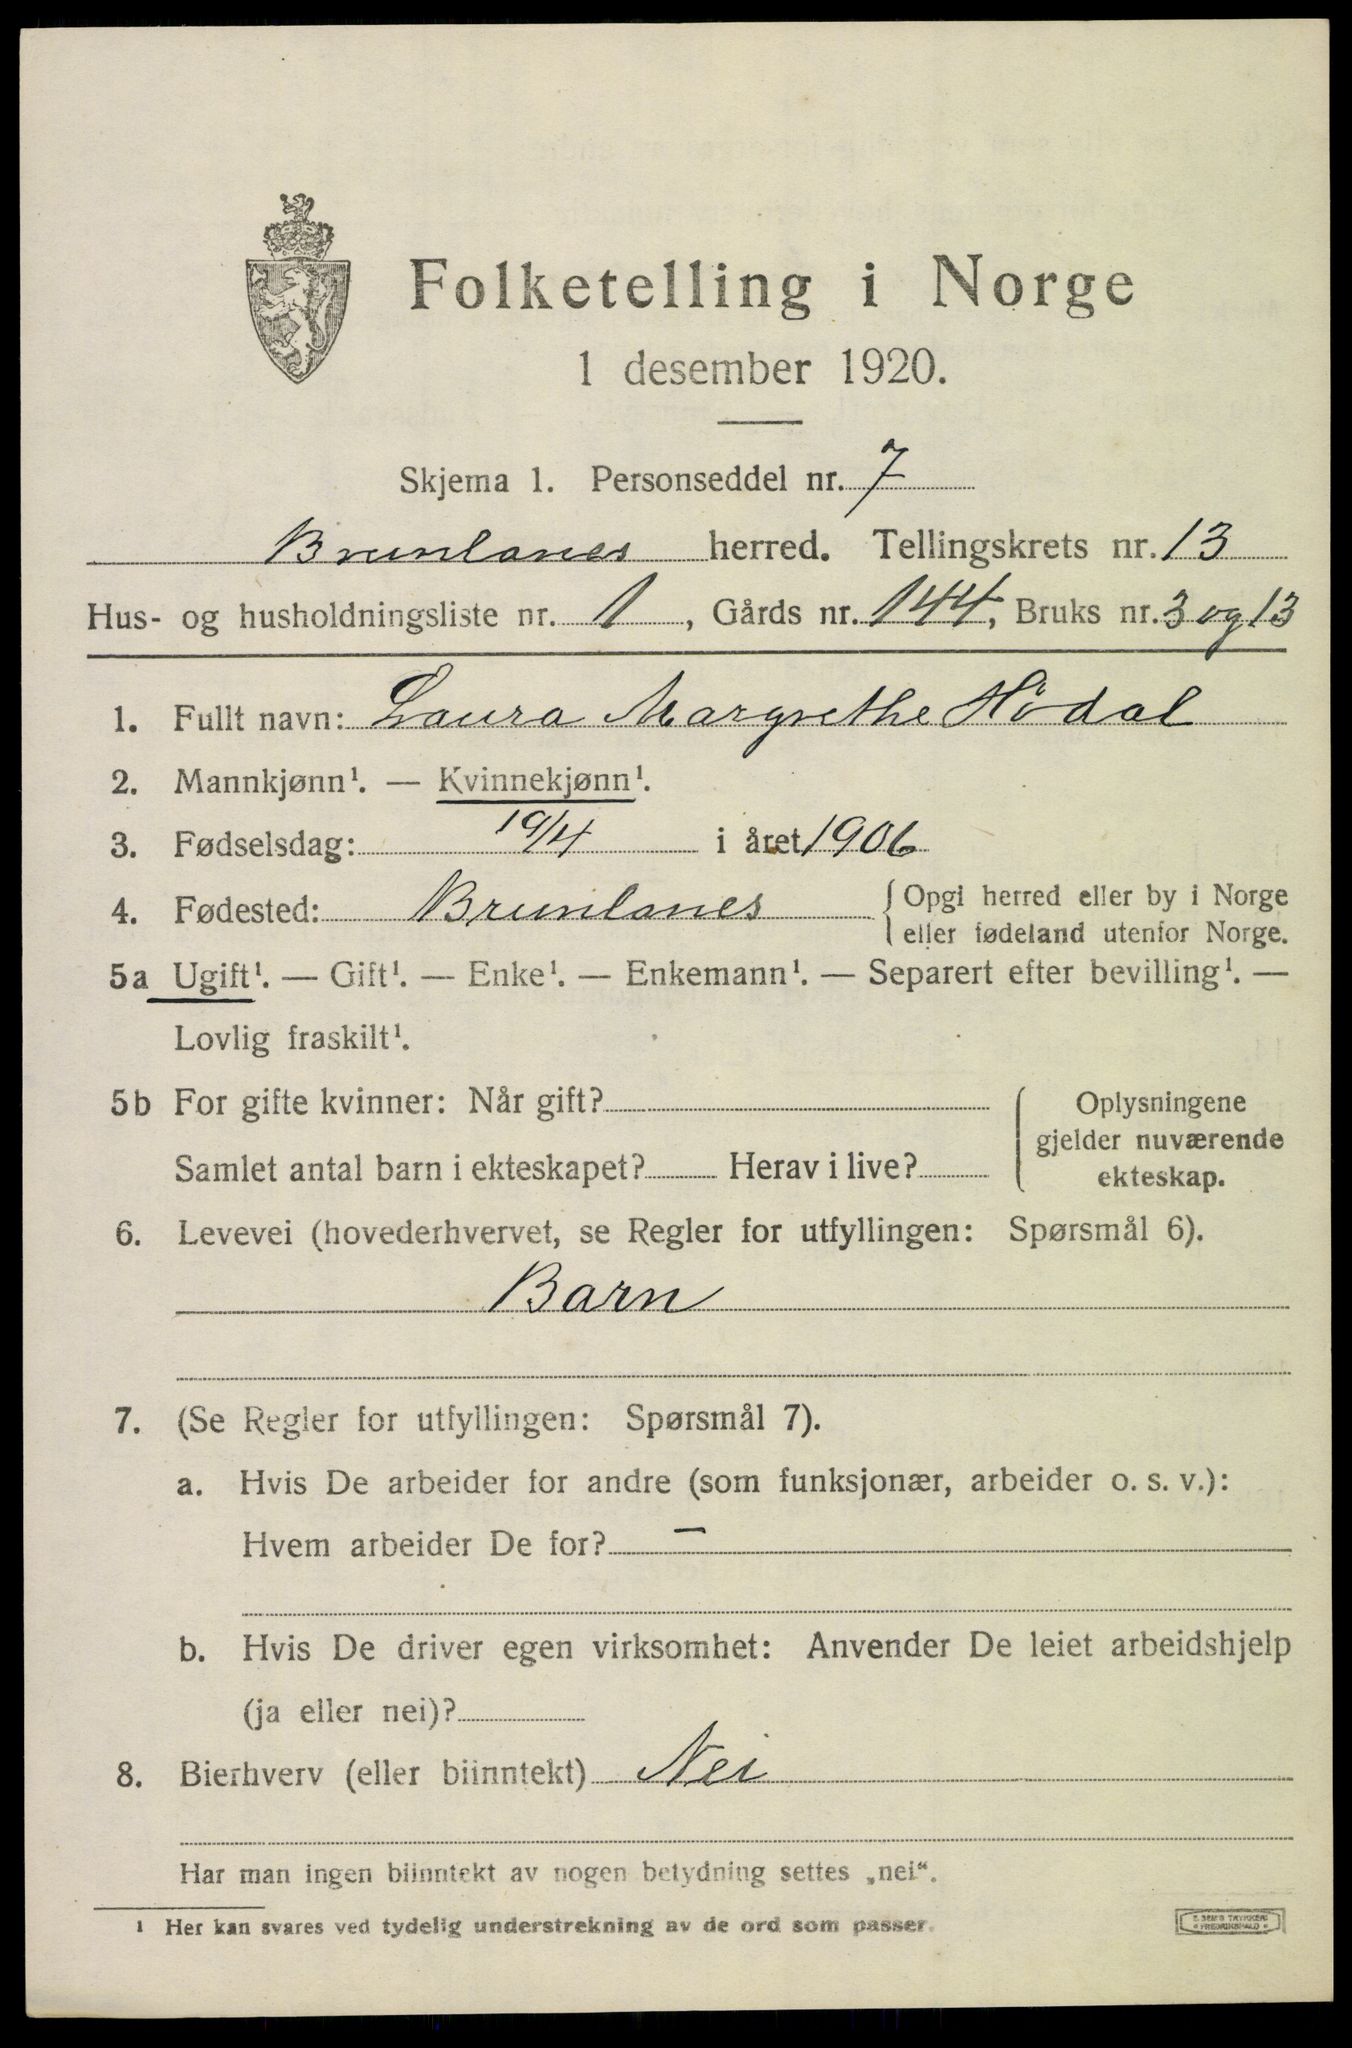 Folketelling i Norge
1 desember 1920.
Skjema 1. Personseddel nr. 7
Brunlanes herred. Tellingskrets nr. 13
Hus- og husholdningsliste nr. 1, Gårds nr. 144, Bruks nr. 3 og 13
1. Fullt navn: Laura Margrethe Hödal
2. Mannkjønn¹. — Kvinnekjønn¹.
3. Fødselsdag: 19/4 i året 1906
4. Fødested: Brunlanes { Opgi herred eller by i Norge
eller fødeland utenfor Norge.
5a Ugift¹. — Gift¹. — Enke¹. — Enkemann¹. — Separert efter bevilling¹. —
Lovlig fraskilt¹.
5b For gifte kvinner: Når gift? Oplysningene
gjelder nuværende
Samlet antal barn i ekteskapet? Herav i live? ekteskap.
6. Levevei (hovederhvervet, se Regler for utfyllingen: Spørsmål 6).
Barn
7. (Se Regler for utfyllingen: Spørsmål 7).
a. Hvis De arbeider for andre (som funksjonær, arbeider o. s. v.):
Hvem arbeider De for? —
b. Hvis De driver egen virksomhet: Anvender De leiet arbeidshjelp
(ja eller nei)?
8. Bierhverv (eller biinntekt) Nei
Har man ingen biinntekt av nogen betydning settes „nei“.
¹ Her kan svares ved tydelig understrekning av de ord som passer.
E. SEM'S TRYKKERI
FREDRIKSHALD